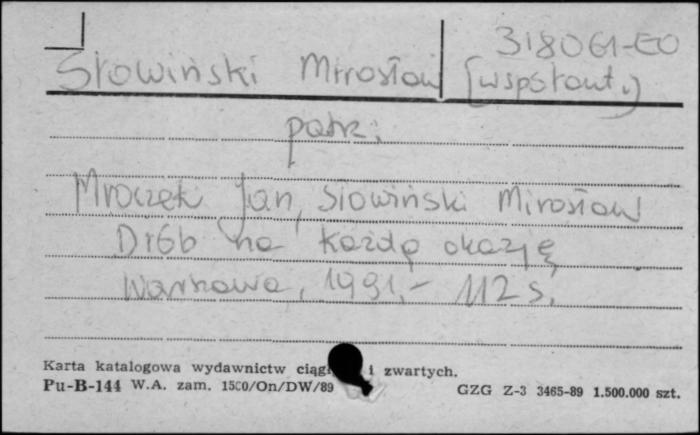 318061-EO
Słowiński Mirosław (współaut.)
patrz:
Mroczek Jan, Słowiński Mirosław
Drób na każdą okazję
Warszawa, 1991.- 112 s.
Karta katalogowa wydawnictw i zwartych.
Pu-B-144 W.A. zam. 1500/On/DW/89
GZG Z-3 3465-89 1.500.000 szt.